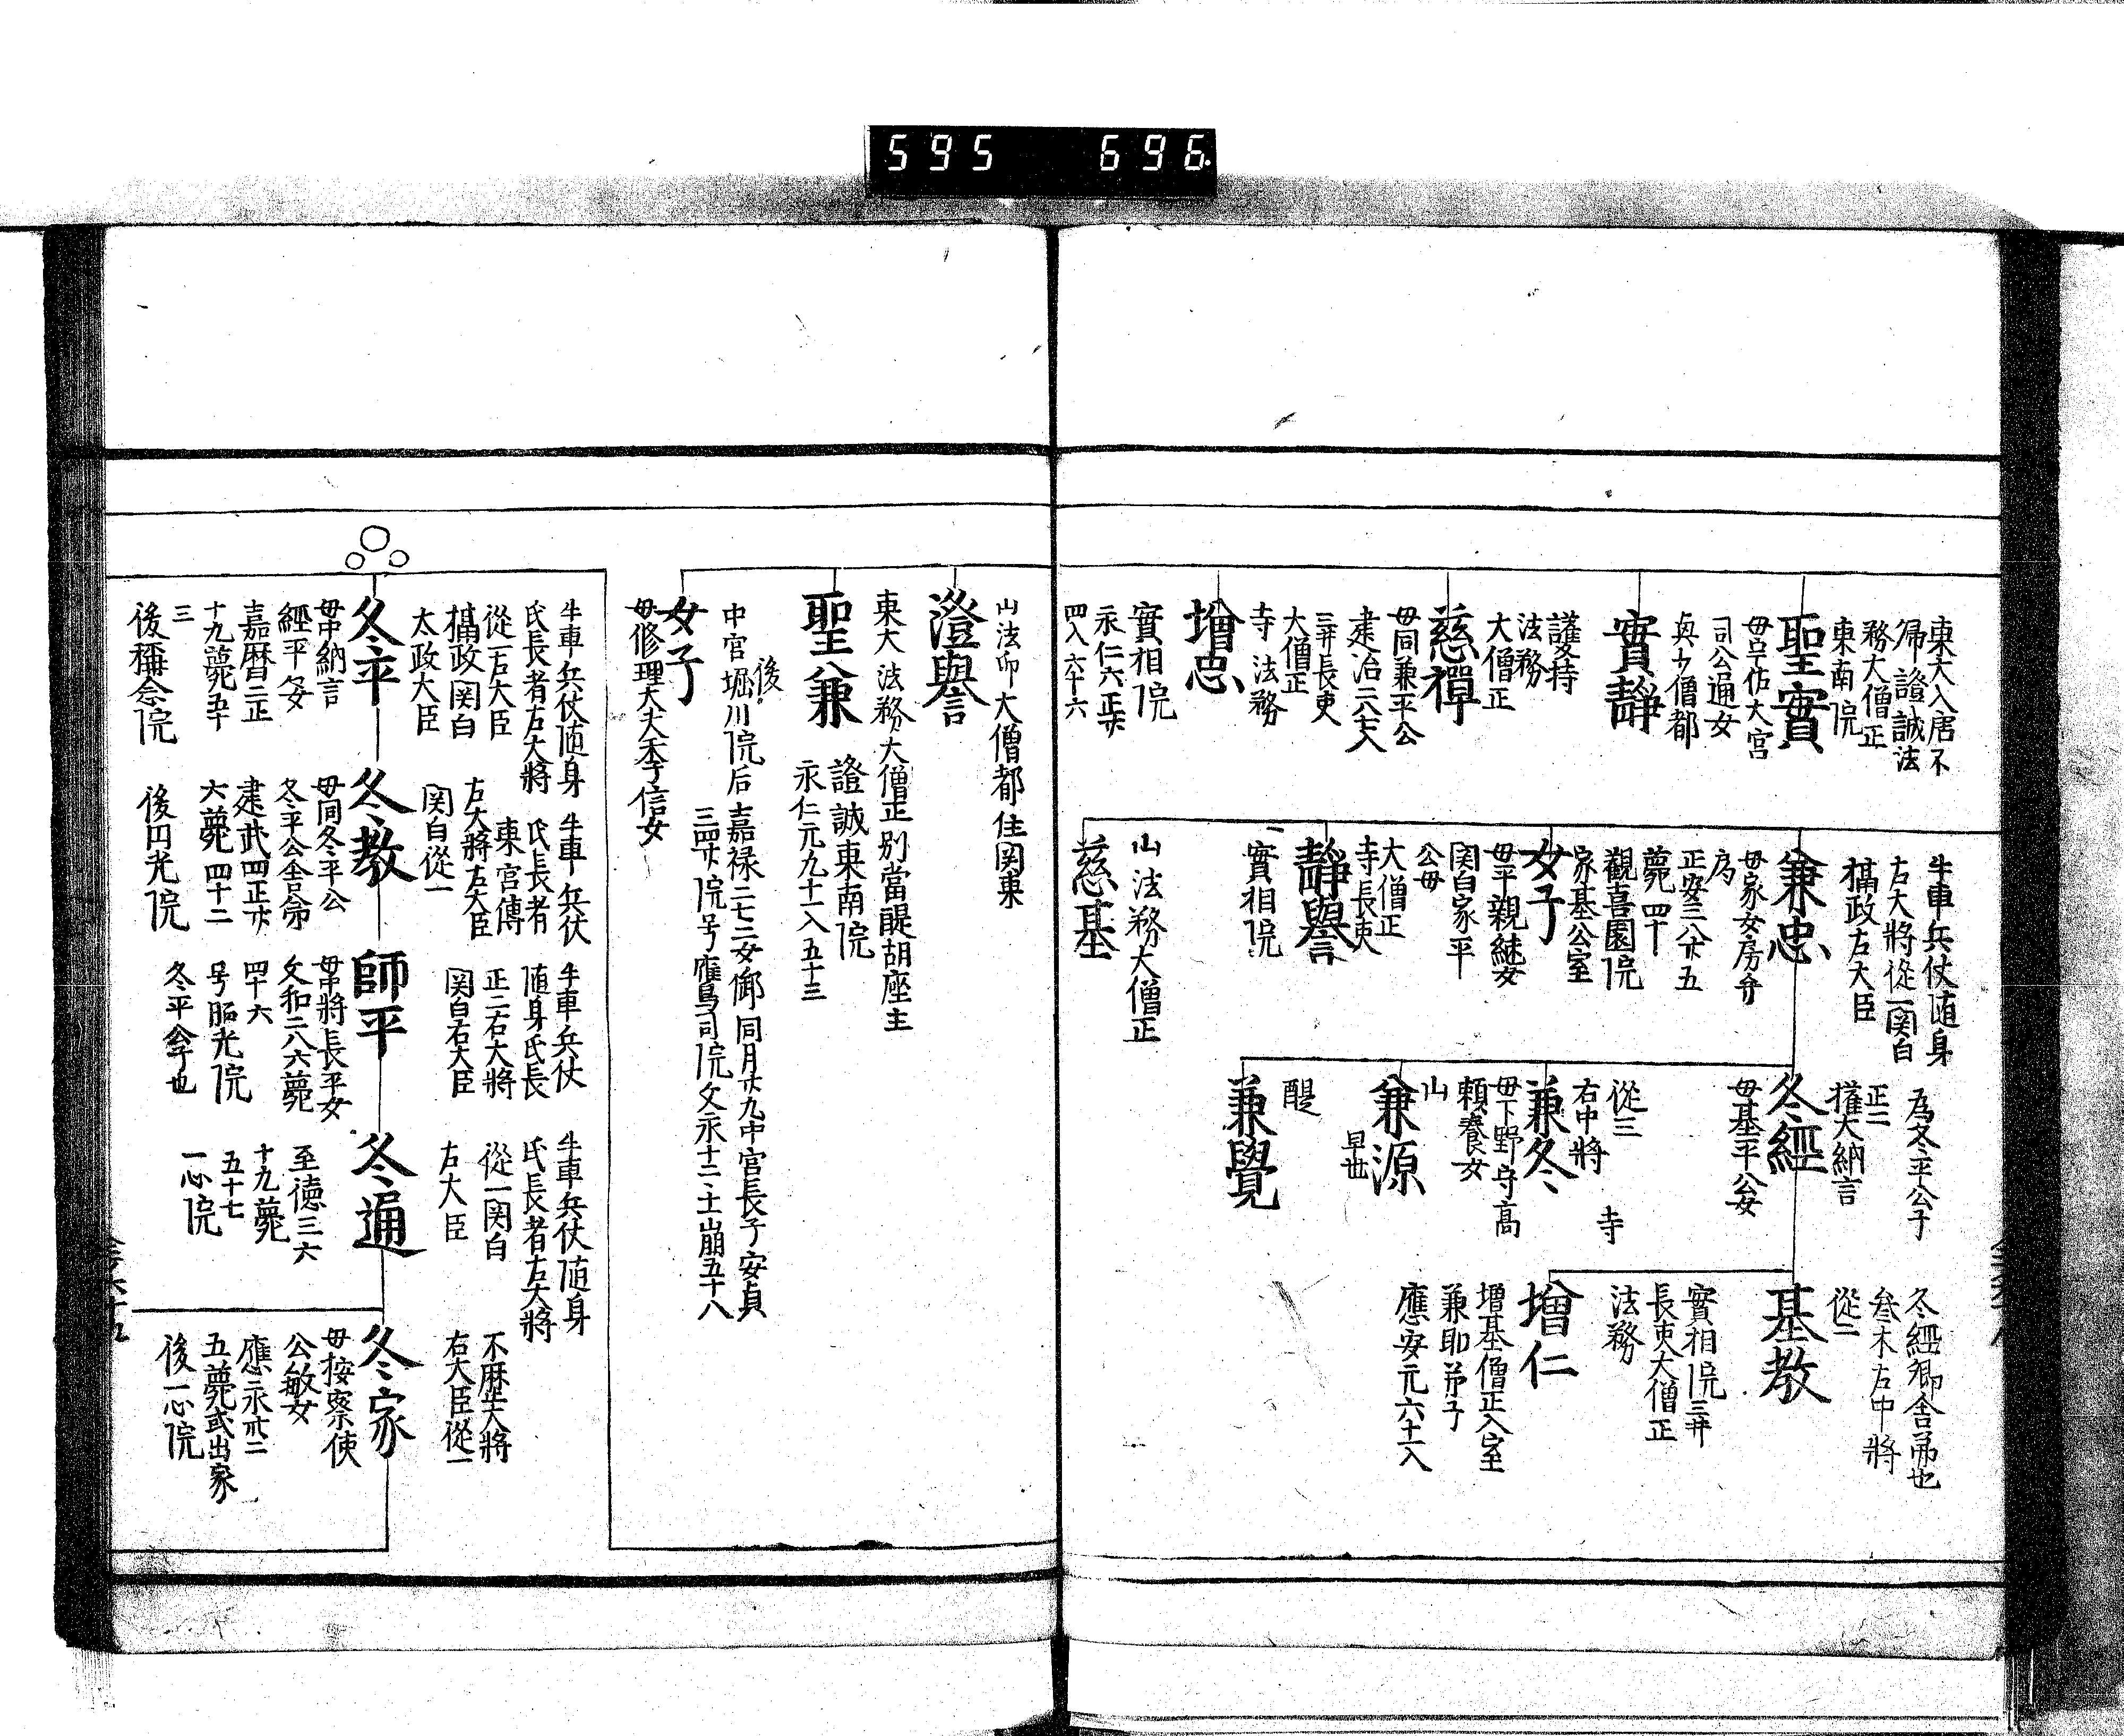 595 696
東大入唐不
帰證誠法
務大僧正
東南院
聖實
母宇佐大宮
司公通女
與少僧都
實靜
護持
法務
大僧正
慈禪
母同兼平公
建治二六七入
三井長吏
大僧正
寺 法務
增忠
實相院
永仁六正廿
四入六十六
牛車兵仗随身
左大將從一関白
攝政左大臣
兼忠
母家女房弁
局
正安三八廿五
薨四十
觀喜園院
家基公室
女子
母平親継女
関白家平
公母
大僧正
寺長吏
靜譽
實相院
山法務大僧正
慈基
為冬平公子
正二
權大納言
冬經
母基平公女
從三
右中將
兼冬
母下野守高
頼養女
山
兼源
早世
醍
兼覺
冬經卿舎弟也
叄木左中將
從二
基教
寺
實相院三井
長吏大僧正
法務
增仁
增基僧正入室
兼助弟子
應安元六十一入
山法印大僧都住関東
澄譽
東大法務大僧正別當醍胡座主
聖兼
證誠東南院
永仁元九十一入五十三
中宮後堀川院后嘉禄二七二女御同月廿九中宮長子安貞
三四廿院号鷹司院文永十二二十一崩五十八
女子
母修理大夫季信女
牛車兵仗随身
氏長者左大將
從一右大臣
攝政関白
太政大臣
冬平
母中納言
經平女
嘉暦二正
十九薨五十
三
後稱念院
牛車兵仗
氏長者
東宮傅
左大將左大臣
関白從一
冬教
母同冬平公
冬平公舎弟
建武四正廿
六薨四十二
後円光院
牛車兵仗
随身氏長
正二右大將
関白右大臣
師平
母中將長平女
文和二八六薨
四十六
号昭光院
冬平公子也
牛車兵仗随身
氏長者左大將
從一関白
左大臣
冬通
至徳三六
十九薨
五十七
一心院
不歴大將
右大臣從一
冬家
母按察使
公敏女
應永卅二
五薨或出家
後一心院